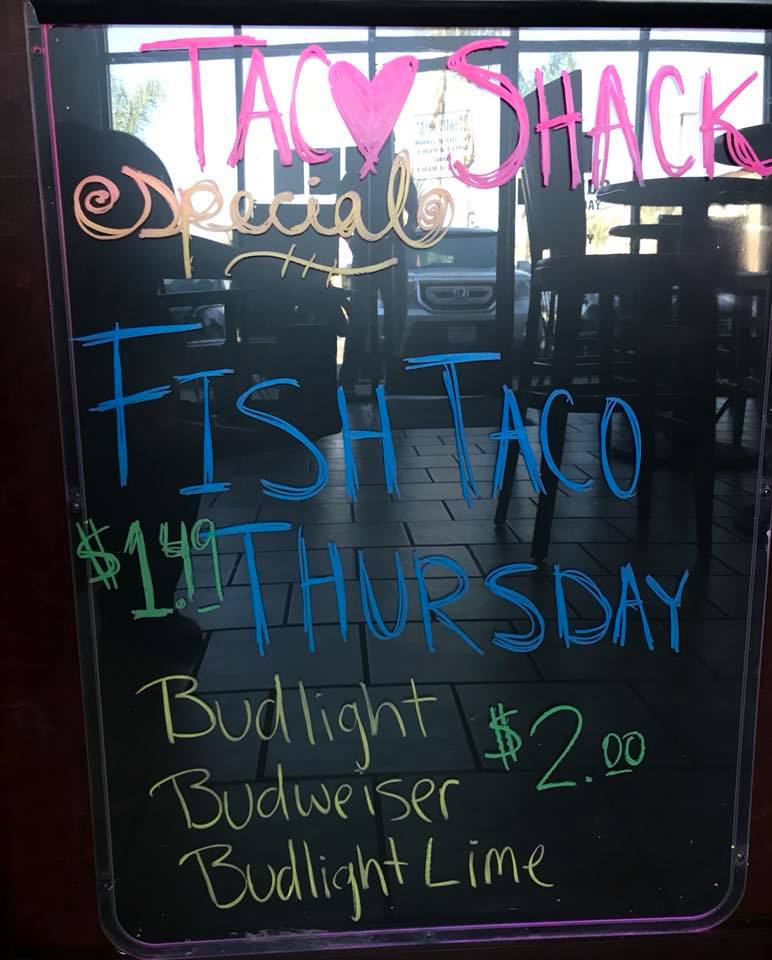 TAC♥ SHACK
Special
FISH TACO
$1.49 THURSDAY
Budlight
$2.00
Budweiser
Budlight Lime